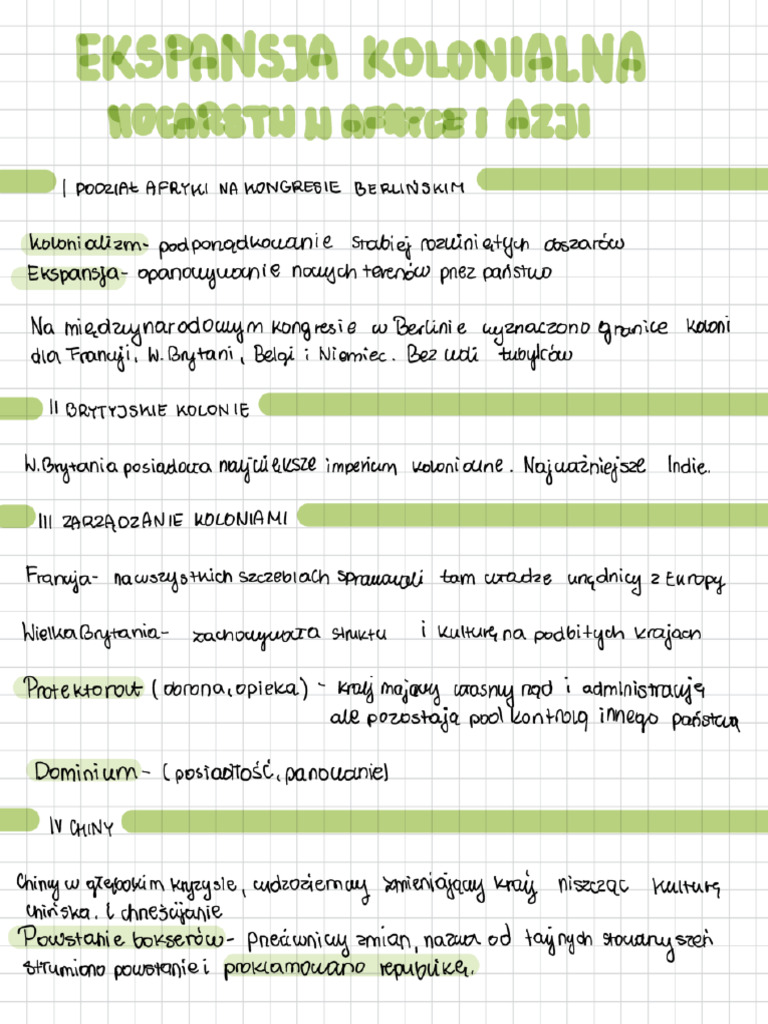 EKSPANSJA KOLONIALNA
MOCARSTW W AFRYCE I AZJI
I PODZIAŁ AFRYKI NA KONGRESIE BERLIŃSKIM
Kolonializm- podporządkowanie słabiej rozwiniętych obszarów
Ekspansja- opanowywanie nowych terenów przez państwo
Na międzynarodowym kongresie w Berlinie wyznaczono granice koloni
dla Francji, W. Brytani, Belgi i Niemiec. Bez woli tubylców
II BRYTYJSKIE KOLONIE
W. Brytania posiadała największe imperium kolonialne. Najważniejsze Indie.
III ZARZĄDZANIE KOLONIAMI
Francja- na wszystkich szczeblach sprawowali tam władze urzędnicy z Europy
Wielka Brytania- zachowywała struktu i kulturę na podbitych krajach
Protektorat (obrona, opieka) - kraj mający własny rząd i administrację
ale pozostają pod kontrolą innego państwa
Dominium - (posiadłość, panowanie)
IV CHINY
Chiny w głębokim kryzysie, cudzoziemcy zmieniający kraj niszcząc kulturę
chińska. i chrześcijanie
Powstanie bokserów- przeciwnicy zmian, nazwa od tajnych stowarzyszeń
strumiono powstanie i proklamowano republikę.